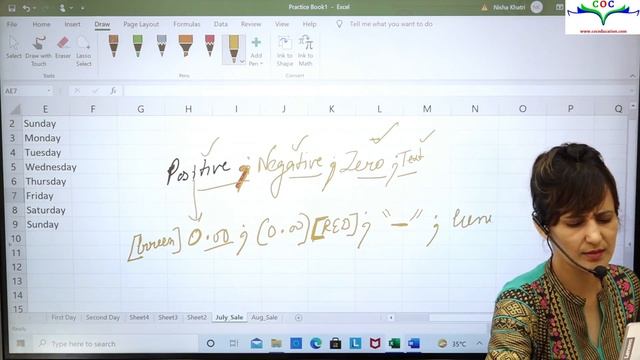 Practice Book1 - Excel
Nisha Khatri
NK
COC
www.coceducation.com
File Home Insert Draw Page Layout Formulas Data Review View Help Tell me what you want to do
Select Draw with Touch Eraser Lasso Select Add Pen Ink to Shape Ink to Math
Tools Pens Convert
AE7
E F G H I J K L M N O P Q
2 Sunday
3 Monday
4 Tuesday
5 Wednesday
6 Thursday
7 Friday
8 Saturday
9 Sunday
10
11
12
13
14
15
Positive ; Negative ; Zero ; Text
[Green] 0.00 ; (0.00) [RED] ; "-" ;
First Day Second Day Sheet4 Sheet3 Sheet2 July_Sale Aug_Sale
Type here to search
35°C